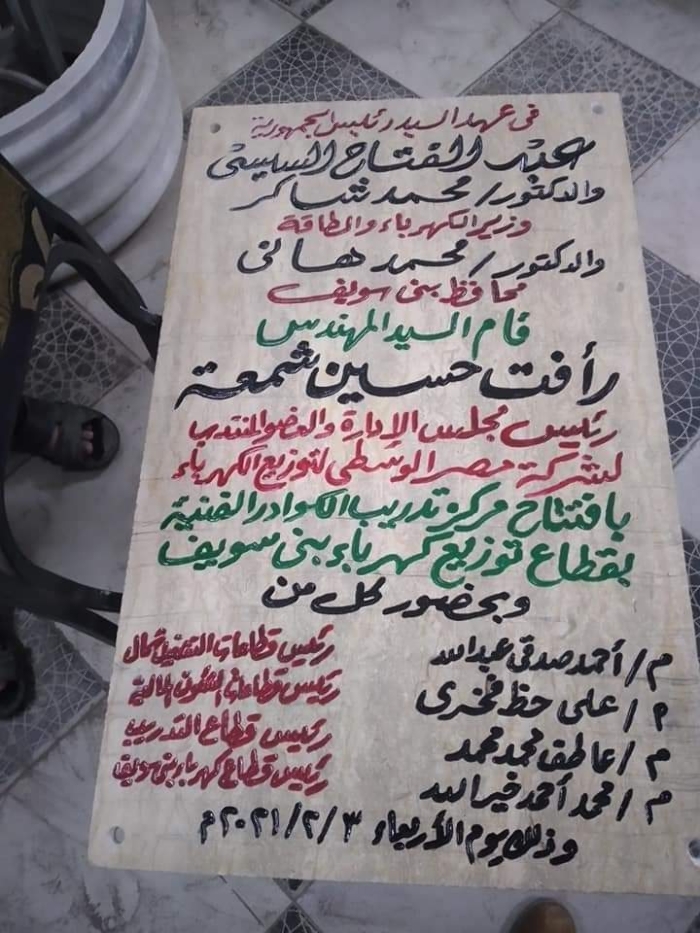 فى عهد السيد رئيس الجمهورية
عبد الفتاح السيسى
والدكتور/ محمد شاكر
وزير الكهرباء والطاقة
والدكتور/ محمد هانى
محافظ بنى سويف
قام السيد المهندس
رأفت حسين شمعة
رئيس مجلس الإدارة والعضو المنتدب
لشركة مصر الوسطى لتوزيع الكهرباء
بافتتاح مركز تدريب الكوادر الفنية
بقطاع توزيع كهرباء بنى سويف
وبحضور كل من
م/ أحمد صدقى عبدالله رئيس قطاعات التشغيل شمال
م/ على حظ فخرى رئيس قطاعات الشئون المالية
م/ عاطف محمد محمد رئيس قطاع التدريب
م/ محمد أحمد خيرالله رئيس قطاع كهرباء بنى سويف
وذلك يوم الأربعاء ٢٠٢١/٢/٣م